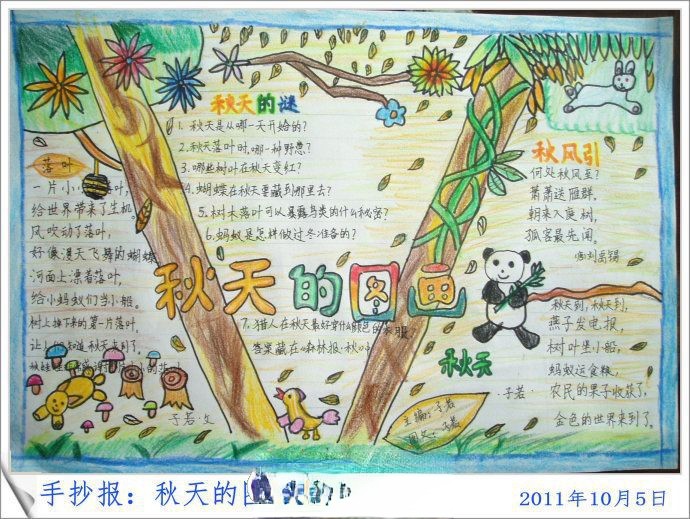 秋天的谜
1. 秋天是从哪一天开始的?
2. 秋天落叶时,哪一种野兽?
3. 哪些树叶在秋天变红?
4. 蝴蝶在秋天要藏到那里去?
5. 树木落叶可以暴露鸟类的什么秘密?
6. 蚂蚁是怎样做过冬准备的?
7. 猎人在秋天最好穿什么颜色的衣服
答案藏在《森林报·秋》
落叶
一片小小
给世界带来了生机。
风吹动了落叶,
好像漫天飞舞的蝴蝶
河面上漂着落叶,
给小蚂蚁们当小船。
树上掉下来的第一片落叶,
让小 知道秋天来到了。
子若 文
秋天的图画
秋风引
何处秋风至?
萧萧送雁群,
朝来入庭树,
孤客最先闻。
刘禹锡
秋天
秋天到,秋天到,
燕子发电报,
树叶当小船,
蚂蚁运食粮,
农民的果子收获了,
金色的世界来到了。
子若
主编:子若
图文:子若
手抄报:秋天的
2011年10月5日